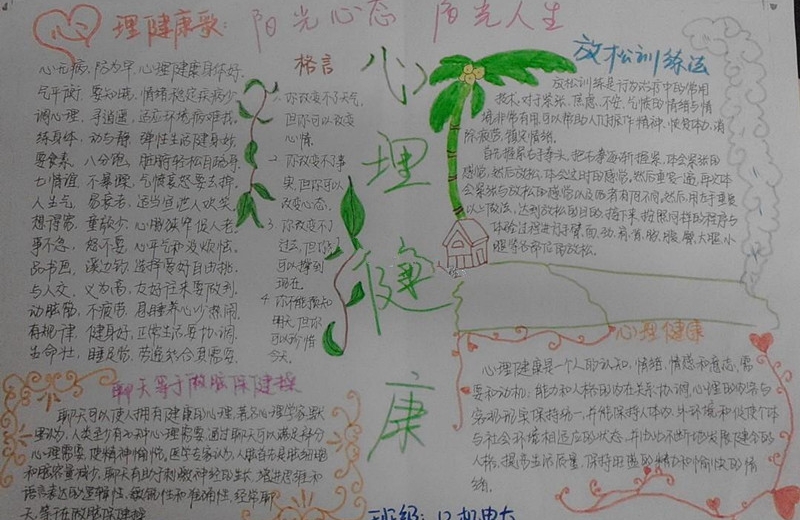 心理健康歌：
阳光心态 阳光人生
心理健康
心无病，防为早，心理健康身体好。
气平衡，要知晓，情绪稳定疾病少。
调心理，寻逍遥，适应环境病难找。
练身体，动与静，弹性生活健身妙。
要食素，八分饱，脏腑轻松自疏导。
七情谊，不暴躁，气愤哀怒要去掉。
人生气，易衰老，适当宣泄人欢笑。
想得宽，童趣少，心胸狭窄促人老。
事不急，怒不要，心平气和没烦恼。
品书画，溪边钓，选择爱好自由挑。
与人交，义为高，友好往来要做到。
动脑筋，不疲劳，息睡养心少热闹。
有规律，健身好，正常生活要协调。
生命壮，睡足觉，劳逸结合真需要。
格言
1. 你改变不了天气，
但你可以改变
心情。
2. 你改变不了事
实，但你可以
改变心态。
3. 你改变不了
过去，但你
可以掌到
现在。
4. 你不能预知
明天，但你
可以珍惜
今天。
放松训练法
放松训练是行为治疗中的常用
技术，对于紧张、焦虑、不安、气愤的情绪与情
境非常有用，可以帮助人们振作精神，恢复体力，消
除疲劳，镇定情绪。
首先握紧右手拳头，把右拳逐渐握紧，体会紧张的
感觉，然后放松，体会这时的感觉，然后重复一遍，再次体
会紧张与放松的感觉以及两者有何不同，然后用左手重复
以上做法，达到放松的目的。接下来，按照同样的程序与
体验过程进行手臂、面、颈、肩、背、胸、腹、臀、大腿、小
腿等各部位的放松。
心理健康
心理健康是一个人的认知、情绪、情感和意志、需
要和动机；能力和人格的内在关系协调，心理的内容与
客观现实保持统一，并能保持人体内、外环境和促使个体
与社会环境相适应的状态，并由此不断地发展健全的
人格，提高生活质量，保持旺盛的精力和愉快的情
绪。
聊天等于做脑保健操
聊天可以使人拥有健康的心理，著名心理学家默
里认为，人类至少有20种心理需要，通过聊天可以满足部分
心理需要，使精神愉悦，医学专家认为，人脑首要是脑细胞
和脑容量减少，聊天有助于刺激神经的生长，增进思维和
语言表达的逻辑性、敏锐性和准确性，经常聊
天等于做脑保健操
班级：12机电大